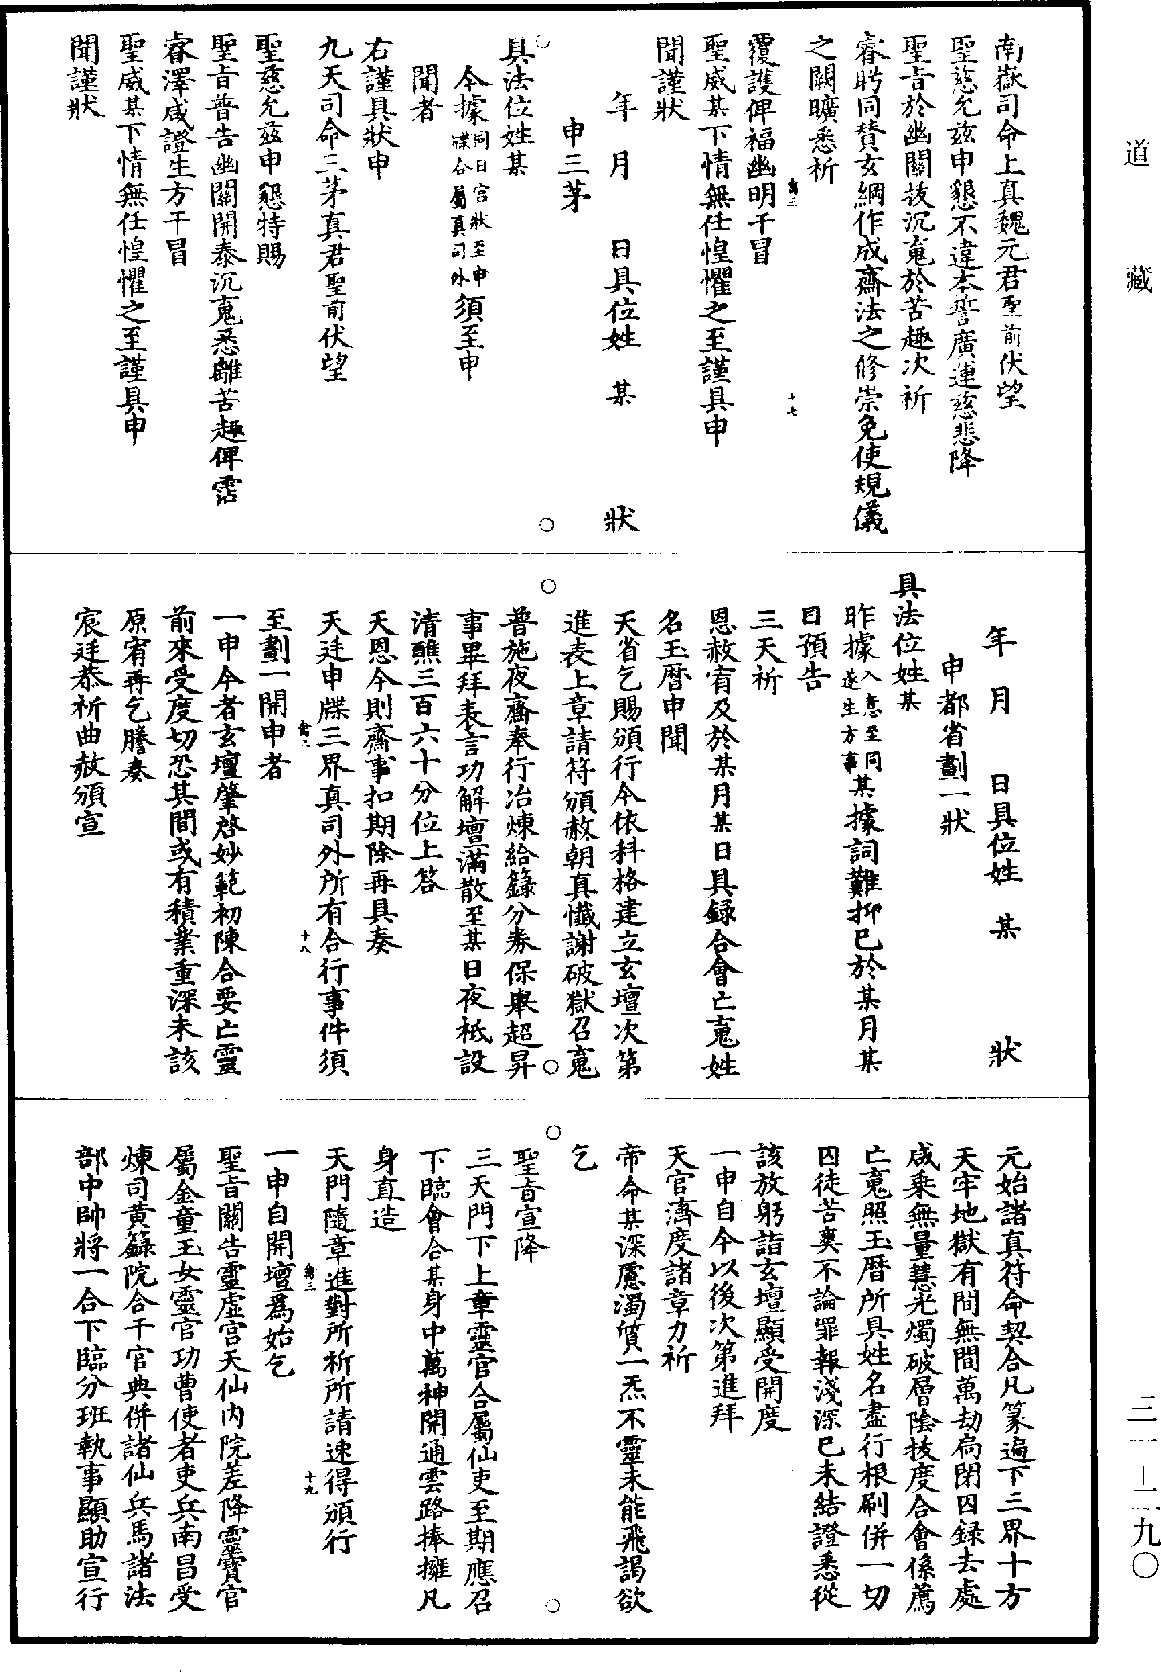 道藏
南嶽司命上真魏元君聖前伏望
聖慈允茲申懇不違本誓廣運慈悲降
聖旨於幽關拔沉䰟於苦趣次祈
睿眄同賛玄綱作成齋法之修崇免使規儀
之闕曠悉祈
覆護俾福幽明干冒
聖威某下情無任惶懼之至謹具申
聞謹狀
年月日具位姓某狀
申三茅
具法位姓某
今據同日宮狀至申牒合屬真司外須至申
聞者
右謹具狀申
九天司命三茅真君聖前伏望
聖慈允茲申懇特賜
聖旨普告幽關開泰沉䰟悉離苦趣俾霑
睿澤咸證生方干冒
聖威某下情無任惶懼之至謹具申
聞謹狀
十七
年月日具位姓某狀
申都省劄一狀
具法位姓某
昨據入意至同遂生方事某據詞難抑已於某月某
日預告
三天祈
恩赦宥及於某月某日具録合會亡䰟姓
名玉曆申聞
天省乞賜頒行今依科格建立玄壇次第
進表上章請符頒赦朝真懺謝破獄召䰟
普施夜齋奉行冶煉給籙分券保舉超昇
事畢拜表言功解壇滿散至某日夜袛設
清醮三百六十分位上答
天恩今則齋事扣期除再具奏
天廷申牒三界真司外所有合行事件須
至劃一開申者
一申今者玄壇肇啓妙範初陳合要亡靈
前來受度切恐其間或有積業重深未該
原宥再乞謄奏
宸廷恭祈曲赦頒宣
十八
元始諸真符命契合凡篆遍下三界十方
天牢地獄有間無間萬劫扃閉囚録去處
咸乗無量慧光燭破層陰拔度合會係薦
亡䰟照玉曆所具姓名盡行根刷併一切
囚徒苦爽不論罪報淺深已未結證悉從
該放躬詣玄壇顯受開度
一申自今以後次第進拜
天官濟度諸章力祈
帝命某深慮濁質一炁不靈未能飛謁欲
乞
聖音宣降
三天門下上章靈官合屬仙吏至期應召
下臨會合某身中萬神開通雲路捧擁凡
身直造
天門隨章進對所祈所請速得頒行
一申自開壇爲始乞
聖旨關告靈虛宫天仙内院差降靈寳官
屬金童玉女靈官功曹使者吏兵南昌受
煉司黄籙院合干官典併諸仙兵馬諸法
部中帥將一合下臨分班執事顯助宣行
十九
三一-二九〇